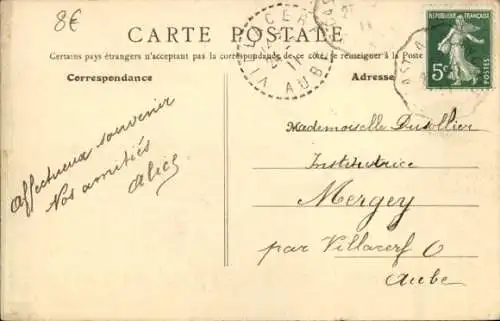 8€
CARTE POSTALE
Certains pays étrangers n'acceptant pas la correspondance de ce côté, se renseigner à la Poste
Correspondance
Adresse
RÉPUBLIQUE FRANÇAISE
5c
Affectueux souvenir
Nos amitiés
Alice
Mademoiselle Dusollier
Institutrice
Mergey
par Villacerf
Aube
AUBE